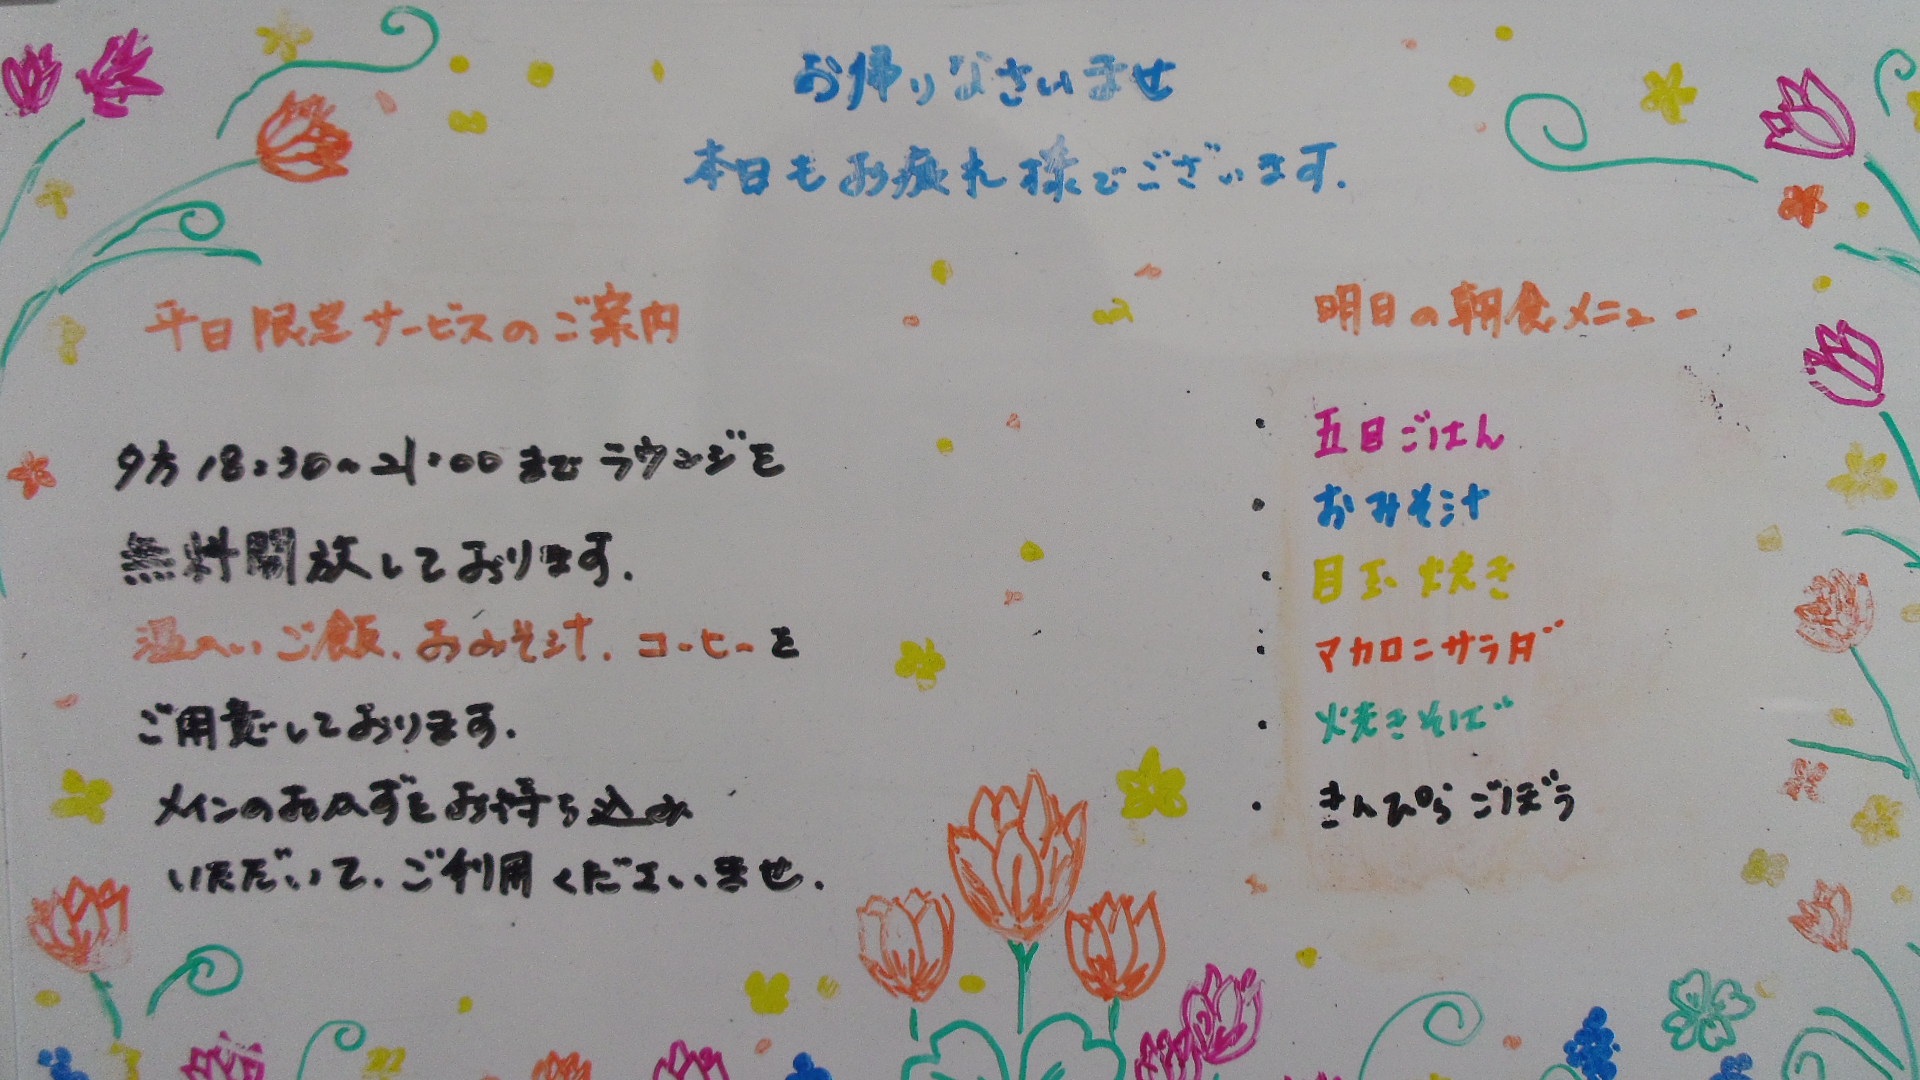 お帰りなさいませ
本日もお疲れ様でございます.
平日限定サービスのご案内
夕方18:30~21:00までラウンジを
無料開放しております.
温かいご飯.おみそ汁.コーヒーを
ご用意しております.
メインのおかずをお持ち込み
いただいて.ご利用くださいませ.
明日の朝食メニュー
・五目ごはん
・おみそ汁
・目玉焼き
・マカロニサラダ
・焼きそば
・きんぴらごぼう